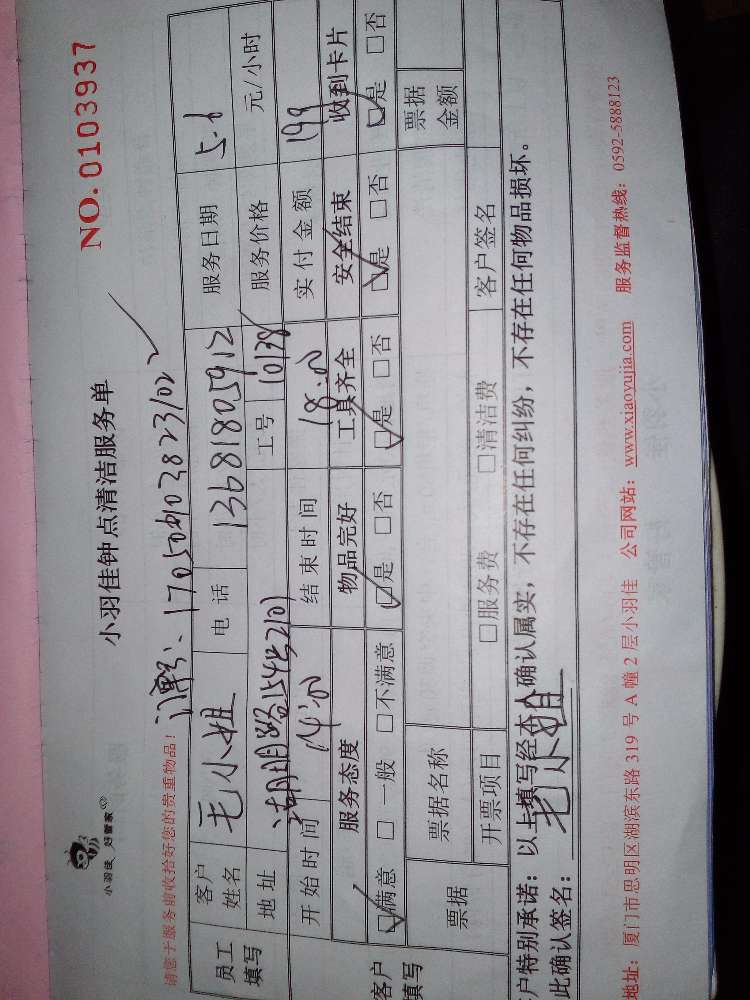 小羽佳 好管家
小羽佳钟点清洁服务单
NO.0103937
请您于服务前收拾好您的贵重物品!
170504103823102
员工填写 客户姓名 毛小姐 电话 13681805912 服务日期 5.6
地址 湖明路 2101 工号 10138 服务价格 元/小时
开始时间 14:00 结束时间 18:00 实付金额 199
客户填写 服务态度 物品完好 工具齐全 安全结束 收到卡片
☑满意 □一般 □不满意 ☑是 □否 ☑是 □否 ☑是 □否 ☑是 □否
票据 票据名称 票据金额
开票项目 □服务费 □清洁费 客户签名
户特别承诺:以上填写经本人确认属实,不存在任何纠纷,不存在任何物品损坏。
此确认签名: 毛小姐
地址:厦门市思明区湖滨东路 319 号 A 幢 2 层小羽佳 公司网站:www.xiaoyujia.com 服务监督热线:0592-5888123